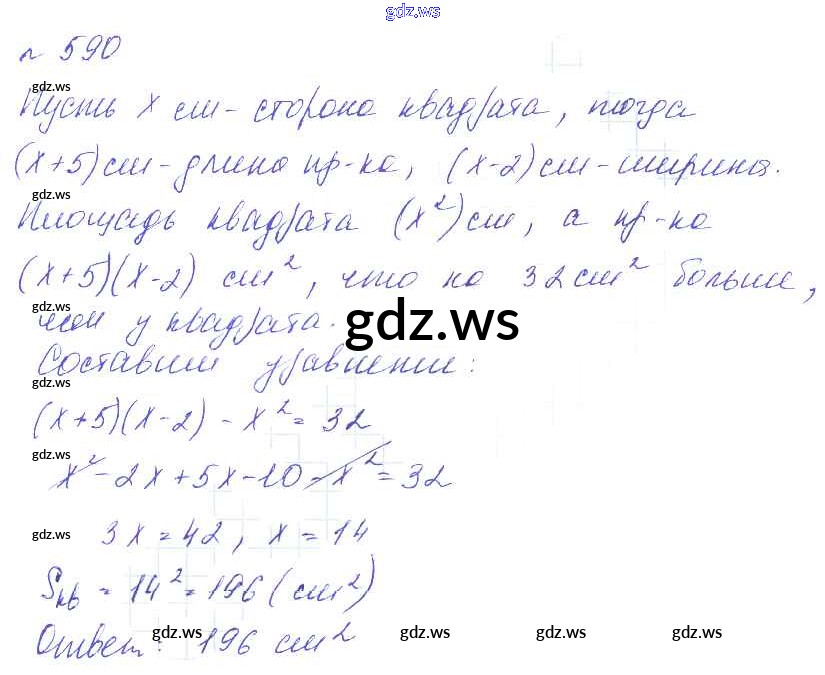 gdz.ws
№ 590
gdz.ws
Пусть x см - сторона квадрата, тогда
(x+5) см - длина пр-ка, (x-2) см - ширина.
gdz.ws
Площадь квадрата (x²) см, а пр-ка
(x+5)(x-2) см², что на 32 см² больше,
gdz.ws
чем у квадрата.
gdz.ws
Составим уравнение:
gdz.ws
(x+5)(x-2) - x² = 32
gdz.ws
x² - 2x + 5x - 10 - x² = 32
gdz.ws
3x = 42, x = 14
Sкв = 14² = 196 (см²)
Ответ: 196 см²
gdz.ws gdz.ws gdz.ws gdz.ws